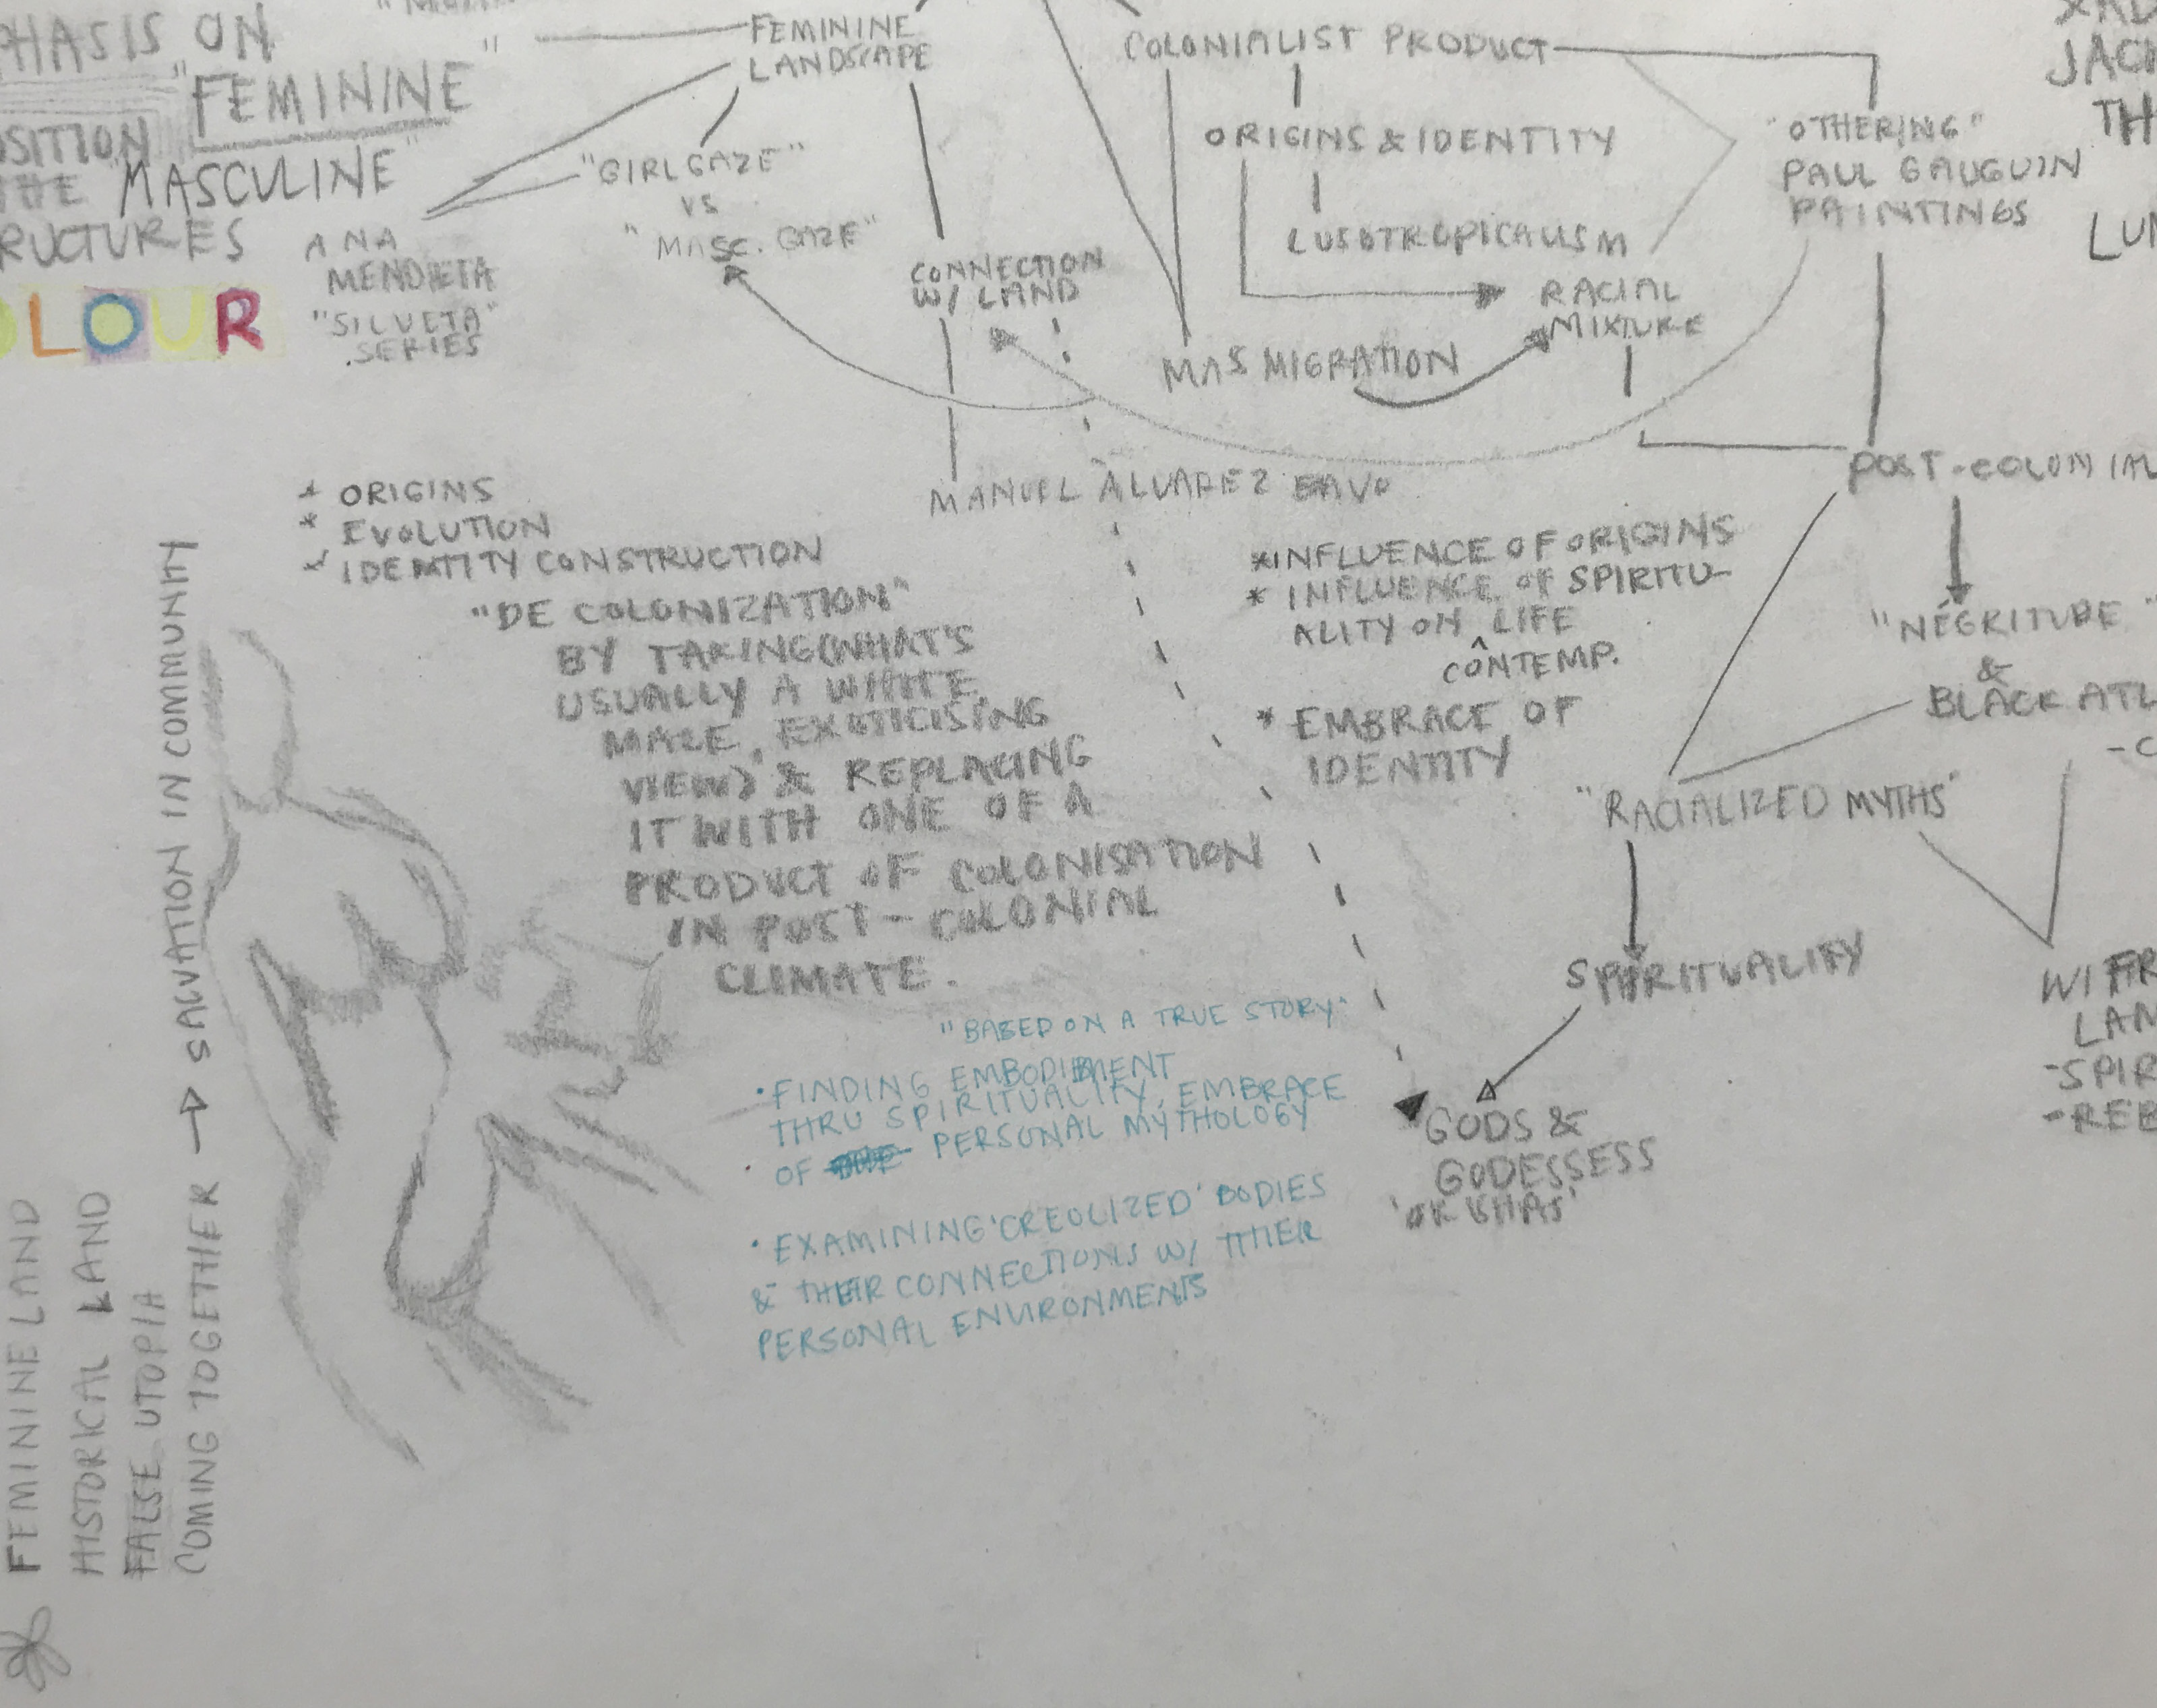 PHASIS ON
"FEMININE"
OSITION
THE "MASCULINE"
RUCTURES
OLOUR
ANA
MENDIETA
"SILUETA"
SERIES
FEMININE
LANDSCAPE
"GIRLGAZE"
VS
"MASC. GAZE"
CONNECTION
W/ LAND
MANUEL ALVAREZ BRAVO
COLONIALIST PRODUCT
ORIGINS & IDENTITY
LUSOTROPICALISM
RACIAL
MIXTURE
MAS MIGRATION
"OTHERING"
PAUL GAUGUIN
PAINTINGS
JAC
TH
LU
POST-COLONIAL
"NÉGRITUDE"
&
BLACK ATL
-C
"RACIALIZED MYTHS"
SPIRITUALITY
GODS &
GODESSESS
'ORISHAS'
WIFR
LAM
-SPIR
-REB
* ORIGINS
* EVOLUTION
* IDENTITY CONSTRUCTION
"DE COLONIZATION"
BY TAKING(WHAT'S
USUALLY A WHITE
MALE, EXOTICISING
VIEW) & REPLACING
IT WITH ONE OF A
PRODUCT OF COLONISATION
IN POST-COLONIAL
CLIMATE.
*INFLUENCE OF ORIGINS
* INFLUENCE OF SPIRITU-
ALITY ON ^ LIFE
CONTEMP.
* EMBRACE OF
IDENTITY
"BASED ON A TRUE STORY"
• FINDING EMBODIMENT
THRU SPIRITUALITY, EMBRACE
OF PERSONAL MYTHOLOGY
• EXAMINING 'CREOLIZED' BODIES
& THEIR CONNECTIONS W/ THIER
PERSONAL ENVIRONMENTS
FEMININE LAND
HISTORICAL LAND
FALSE UTOPIA
COMING TOGETHER → SALVATION IN COMMUNITY